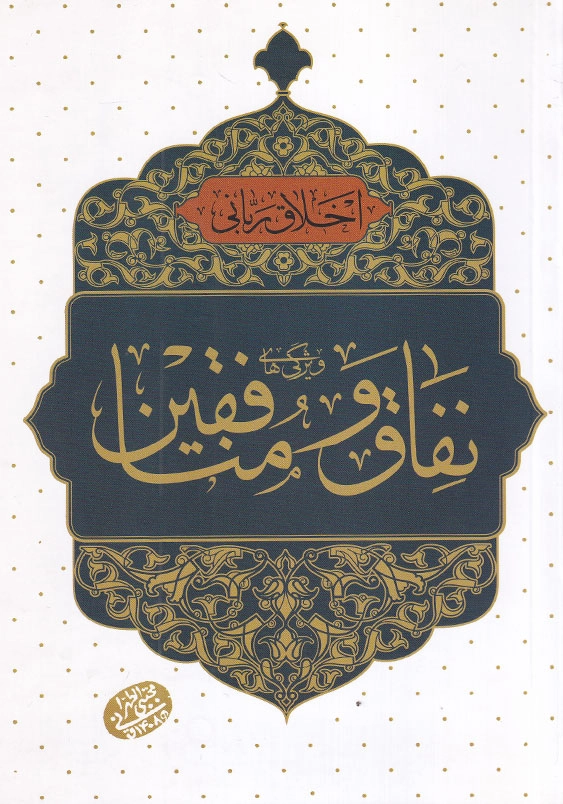 اخلاق ربّانی
نِفَاق و ویژگی های مُنافقین